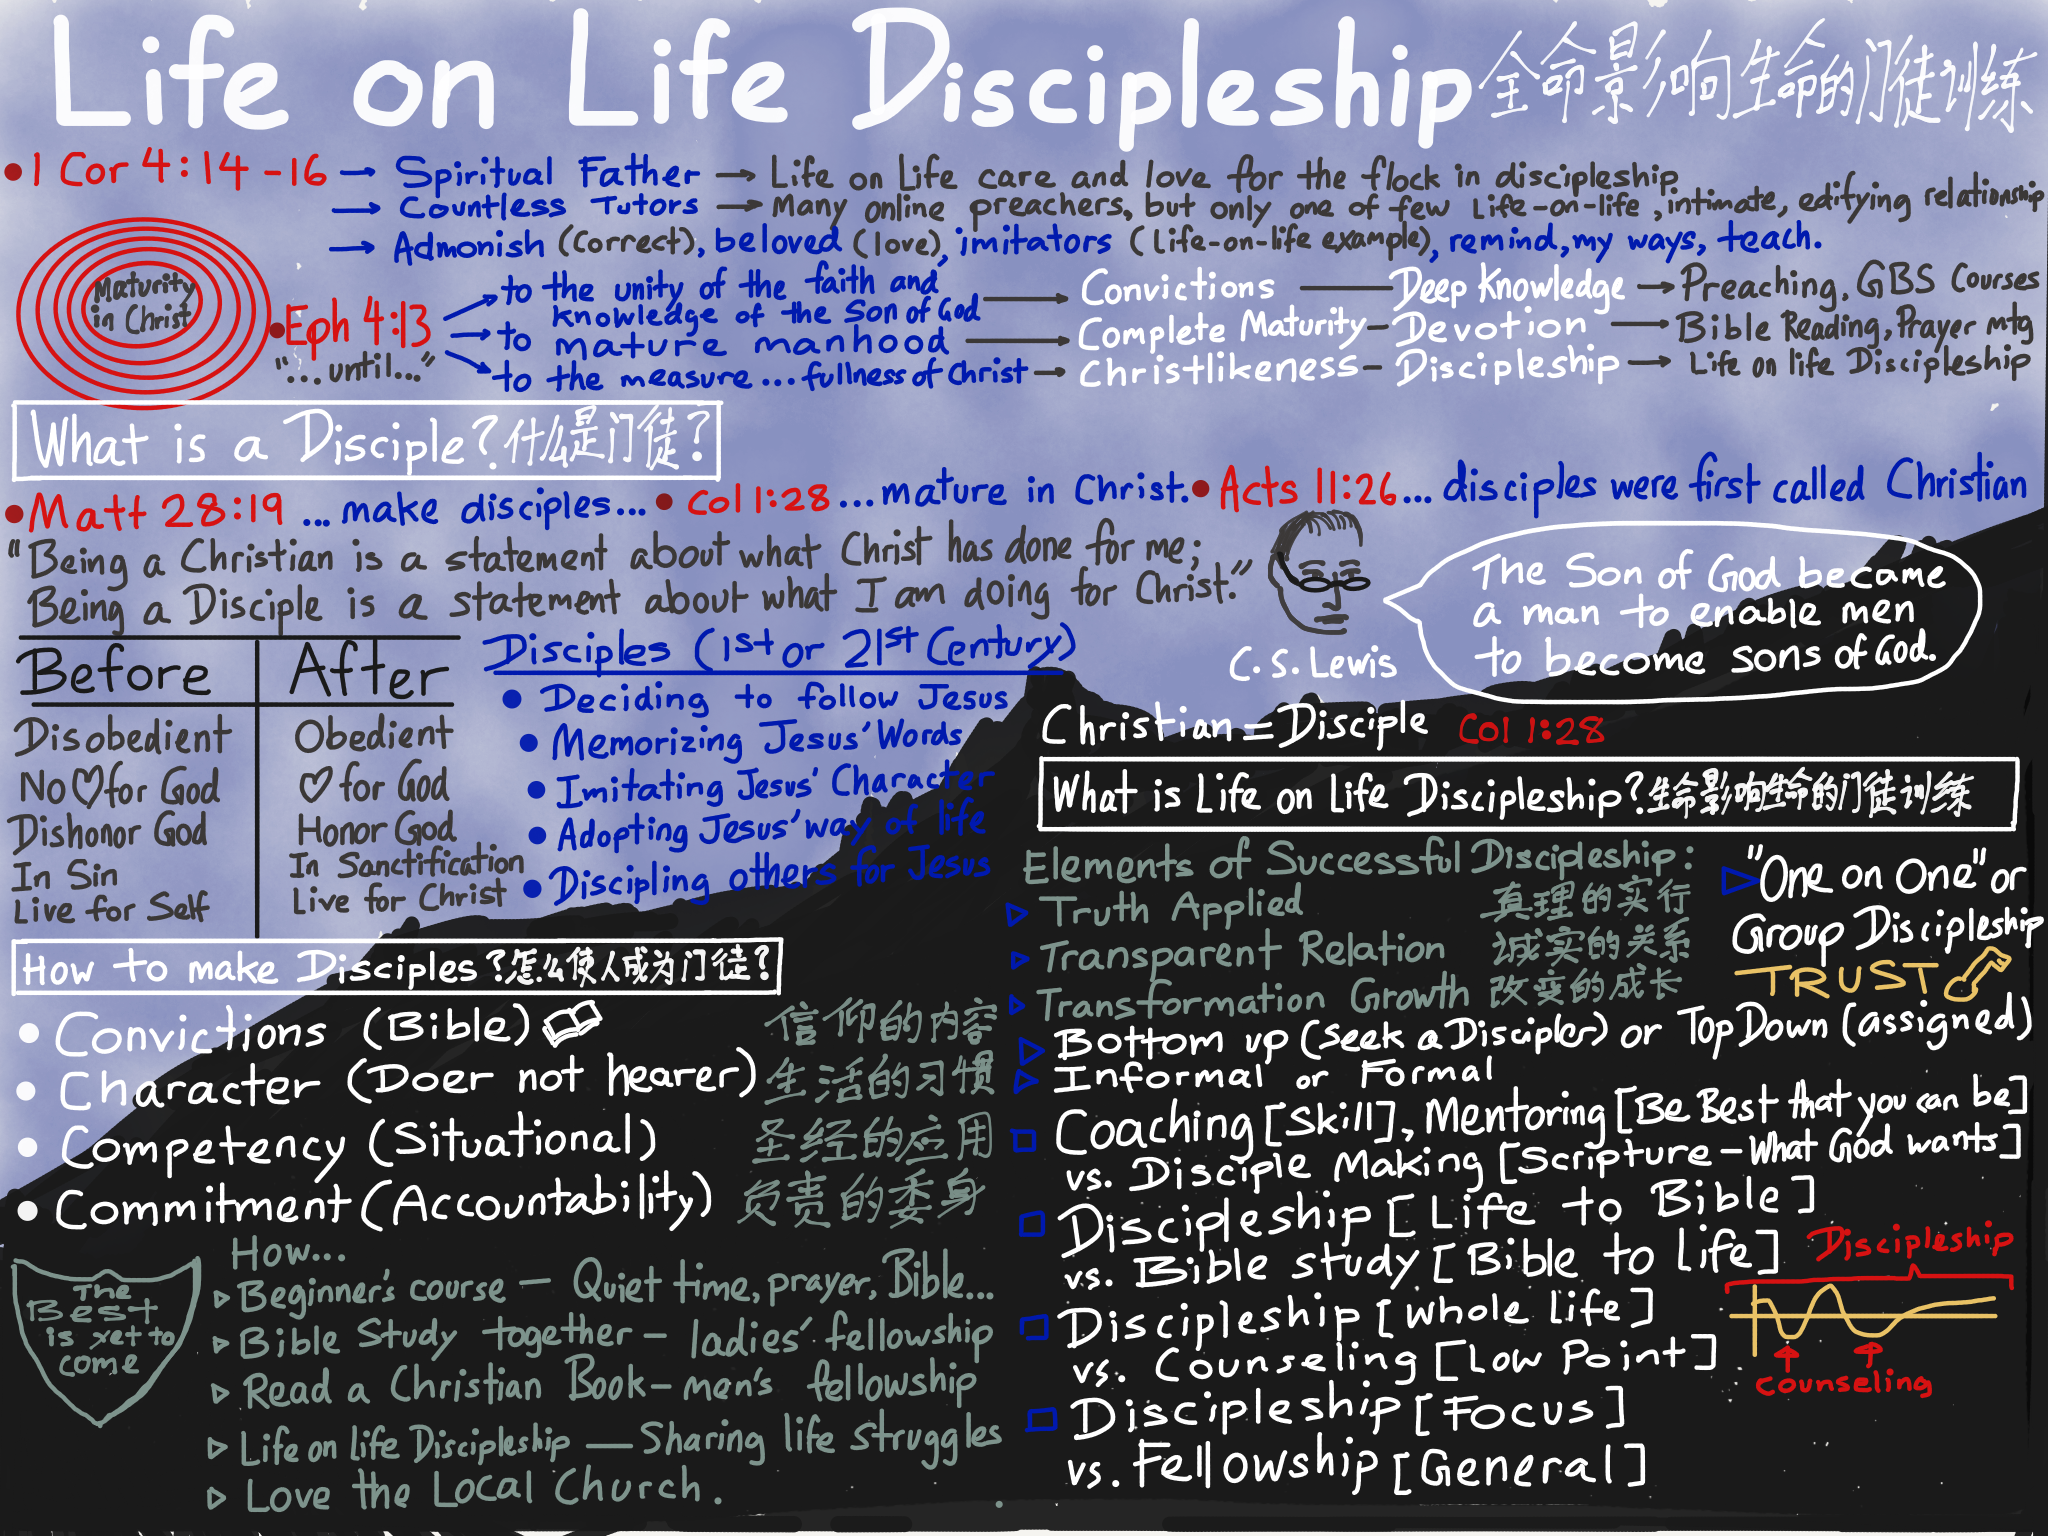 Life on Life Discipleship 全命影响生命的门徒训练
• 1 Cor 4:14-16 → Spiritual Father → Life on Life care and love for the flock in discipleship
→ Countless Tutors → Many online preachers, but only one of few Life-on-life, intimate, edifying relationship
→ Admonish (correct), beloved (love), imitators (Life-on-life example), remind, my ways, teach.
Maturity
in Christ
• Eph 4:13
"...until..."
to the unity of the faith and
knowledge of the Son of God → Convictions — Deep Knowledge → Preaching, GBS Courses
to mature manhood → Complete Maturity - Devotion → Bible Reading, Prayer mtg
to the measure...fullness of Christ → Christlikeness - Discipleship → Life on life Discipleship
What is a Disciple? 什么是门徒?
• Matt 28:19 ... make disciples... • Col 1:28 ... mature in Christ. • Acts 11:26 ... disciples were first called Christian
"Being a Christian is a statement about what Christ has done for me;
Being a Disciple is a statement about what I am doing for Christ."
C. S. Lewis
The Son of God became
a man to enable men
to become sons of God.
Before After
Disobedient Obedient
No ♡ for God ♡ for God
Dishonor God Honor God
In Sin In Sanctification
Live for Self Live for Christ
Disciples (1st or 21st Century)
• Deciding to follow Jesus
• Memorizing Jesus' Words
• Imitating Jesus' Character
• Adopting Jesus' way of life
• Discipling others for Jesus
Christian = Disciple Col 1:28
How to make Disciples? 怎么使人成为门徒?
• Convictions (Bible) 信仰的内容
• Character (Doer not hearer) 生活的习惯
• Competency (Situational) 圣经的应用
• Commitment (Accountability) 负责的委身
The
Best
is yet to
come
How...
▷ Beginner's course — Quiet time, prayer, Bible...
▷ Bible Study together — ladies' fellowship
▷ Read a Christian Book — men's fellowship
▷ Life on life Discipleship — Sharing life struggles
▷ Love the Local Church.
What is Life on Life Discipleship? 生命影响生命的门徒训练
Elements of Successful Discipleship:
▷ Truth Applied 真理的实行
▷ Transparent Relation 诚实的关系
▷ Transformation Growth 改变的成长
▷ "One on One" or
Group Discipleship
TRUST
▷ Bottom up (seek a Discipler) or Top Down (assigned)
▷ Informal or Formal
□ Coaching [Skill], Mentoring [Be Best that you can be]
vs. Disciple Making [Scripture - What God wants]
□ Discipleship [Life to Bible]
vs. Bible study [Bible to life]
□ Discipleship [whole life]
vs. Counseling [Low Point]
□ Discipleship [Focus]
vs. Fellowship [General]
Discipleship
counseling